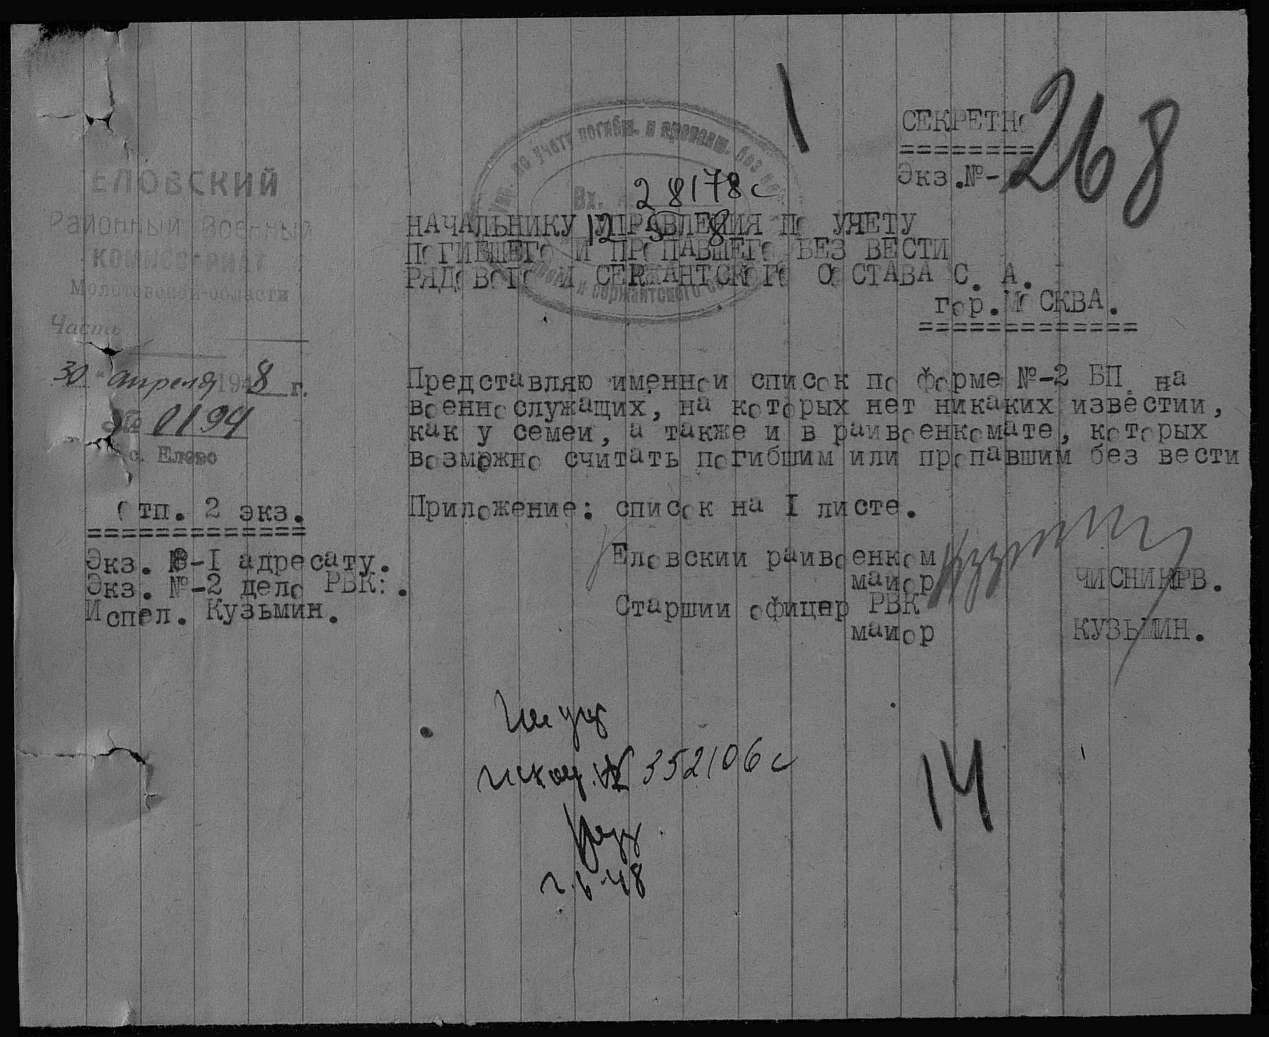 СЕКРЕТНО
=========
Экз.№-
268
ЕЛОВСКИЙ
Районный Военный
КОМИССАРИАТ
Молотовской области
Часть
30 " апреля 1948 г.
№ 0194
с. Елово
по учету погибш. и пропавш. без
Вх.
28178с
12 5 8
и сержантского
НАЧАЛЬНИКУ УПРАВЛЕНИЯ ПО УЧЕТУ
ПОГИБШЕГО И ПРОПАВШЕГО БЕЗ ВЕСТИ
РЯДОВОГО И СЕРЖАНТСКОГО СОСТАВА С. А.
гор.МОСКВА.
=============
Представляю именной список по форме №-2 БП. на
военнослужащих, на которых нет никаких известии,
как у семеи, а также и в раивоенкомате, которых
возможно считать погибшим или пропавшим без вести
Приложение: список на I листе.
Отп. 2 экз.
=============
Экз. №-I адресату.
Экз. №-2 дело РВК:.
Испол. Кузьмин.
Еловскии раивоенком
маиор
ЧИСНИКОВ.
Старшии офицер РВК
маиор
КУЗЬМИН.
№ 352106с
14